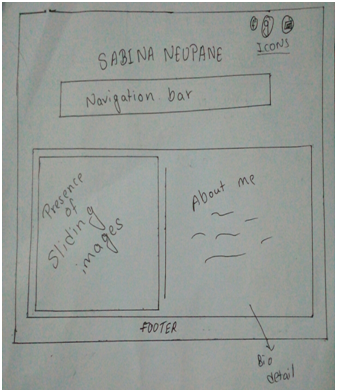 SABINA NEUPANE
ICONS
Navigation bar
Presence
of
Sliding
images
About me
FOOTER
Bio
detail